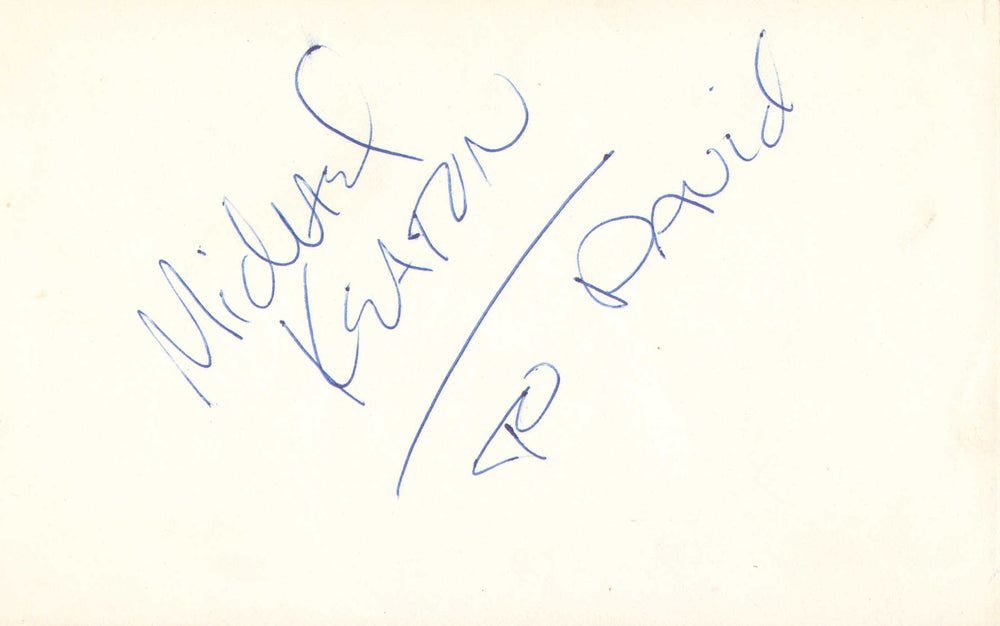 Michael
KEATON
TO
DAVID